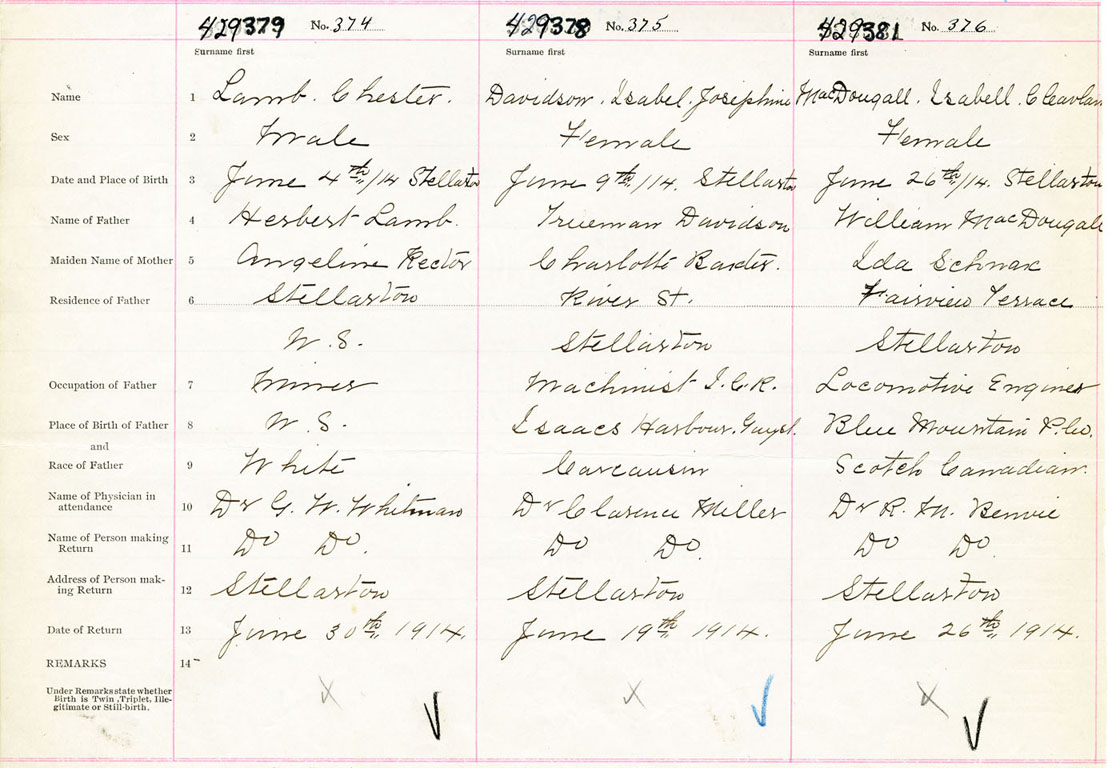 429379 No. 374 429378 No. 375 429381 No. 376
Surname first Surname first Surname first
Name 1 Lamb. Chester. Davidson. Isabel. Josephine MacDougall. Isabell. Cleavlan
Sex 2 Male Female Female
Date and Place of Birth 3 June 4th/14 Stellarton June 9th/14. Stellarton June 26th/14. Stellarton
Name of Father 4 Herbert Lamb. Trueman Davidson William MacDougall
Maiden Name of Mother 5 Angeline Rector Charlotte Baxter. Ida Schnar
Residence of Father 6 Stellarton River St. Fairview Terrace
N.S. Stellarton Stellarton
Occupation of Father 7 Miner Machinist I.C.R. Locomotive Engineer
Place of Birth of Father 8 N.S. Isaacs Harbour. Guyst. Blue Mountain P.Co.
and
Race of Father 9 White Carcausin Scotch Canadian.
Name of Physician in
attendance 10 Dr G. W. Whitman Dr Clarence Miller Dr R. M. Benvie
Name of Person making
Return 11 Do Do. Do Do. Do Do.
Address of Person mak-
ing Return 12 Stellarton Stellarton Stellarton
Date of Return 13 June 30th, 1914. June 19th 1914. June 26th, 1914.
REMARKS 14
Under Remarks state whether
Birth is Twin, Triplet, Ille-
gitimate or Still-birth.